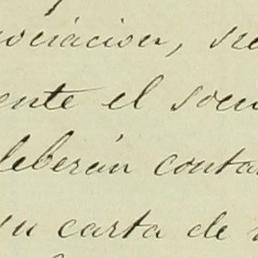 ociacion, se
ente el socio
deberán conta
su carta de